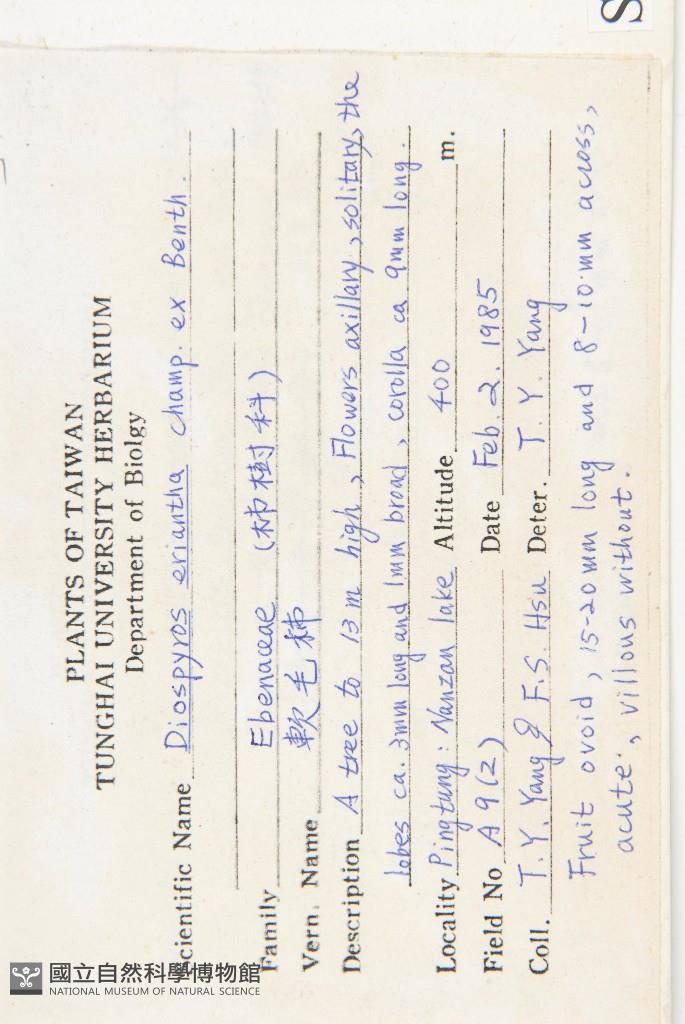 PLANTS OF TAIWAN
TUNGHAI UNIVERSITY HERBARIUM
Department of Biolgy
Scientific Name Diospyros eriantha champ. ex Benth.
Family Ebenaceae (柿樹科)
Vern. Name 軟毛柿
Description A tree to 13 m high, Flowers axillary, solitary, the
lobes ca. 3mm long and 1mm broad, corolla ca 9mm long.
Locality Pingtung: Nanzan lake Altitude 400 m.
Field No A9(2) Date Feb. 2. 1985
Coll. T. Y. Yang & F.S. Hsu Deter. T. Y. Yang
Fruit ovoid, 15-20mm long and 8-10mm across,
acute, villous without.
S
國立自然科學博物館
NATIONAL MUSEUM OF NATURAL SCIENCE